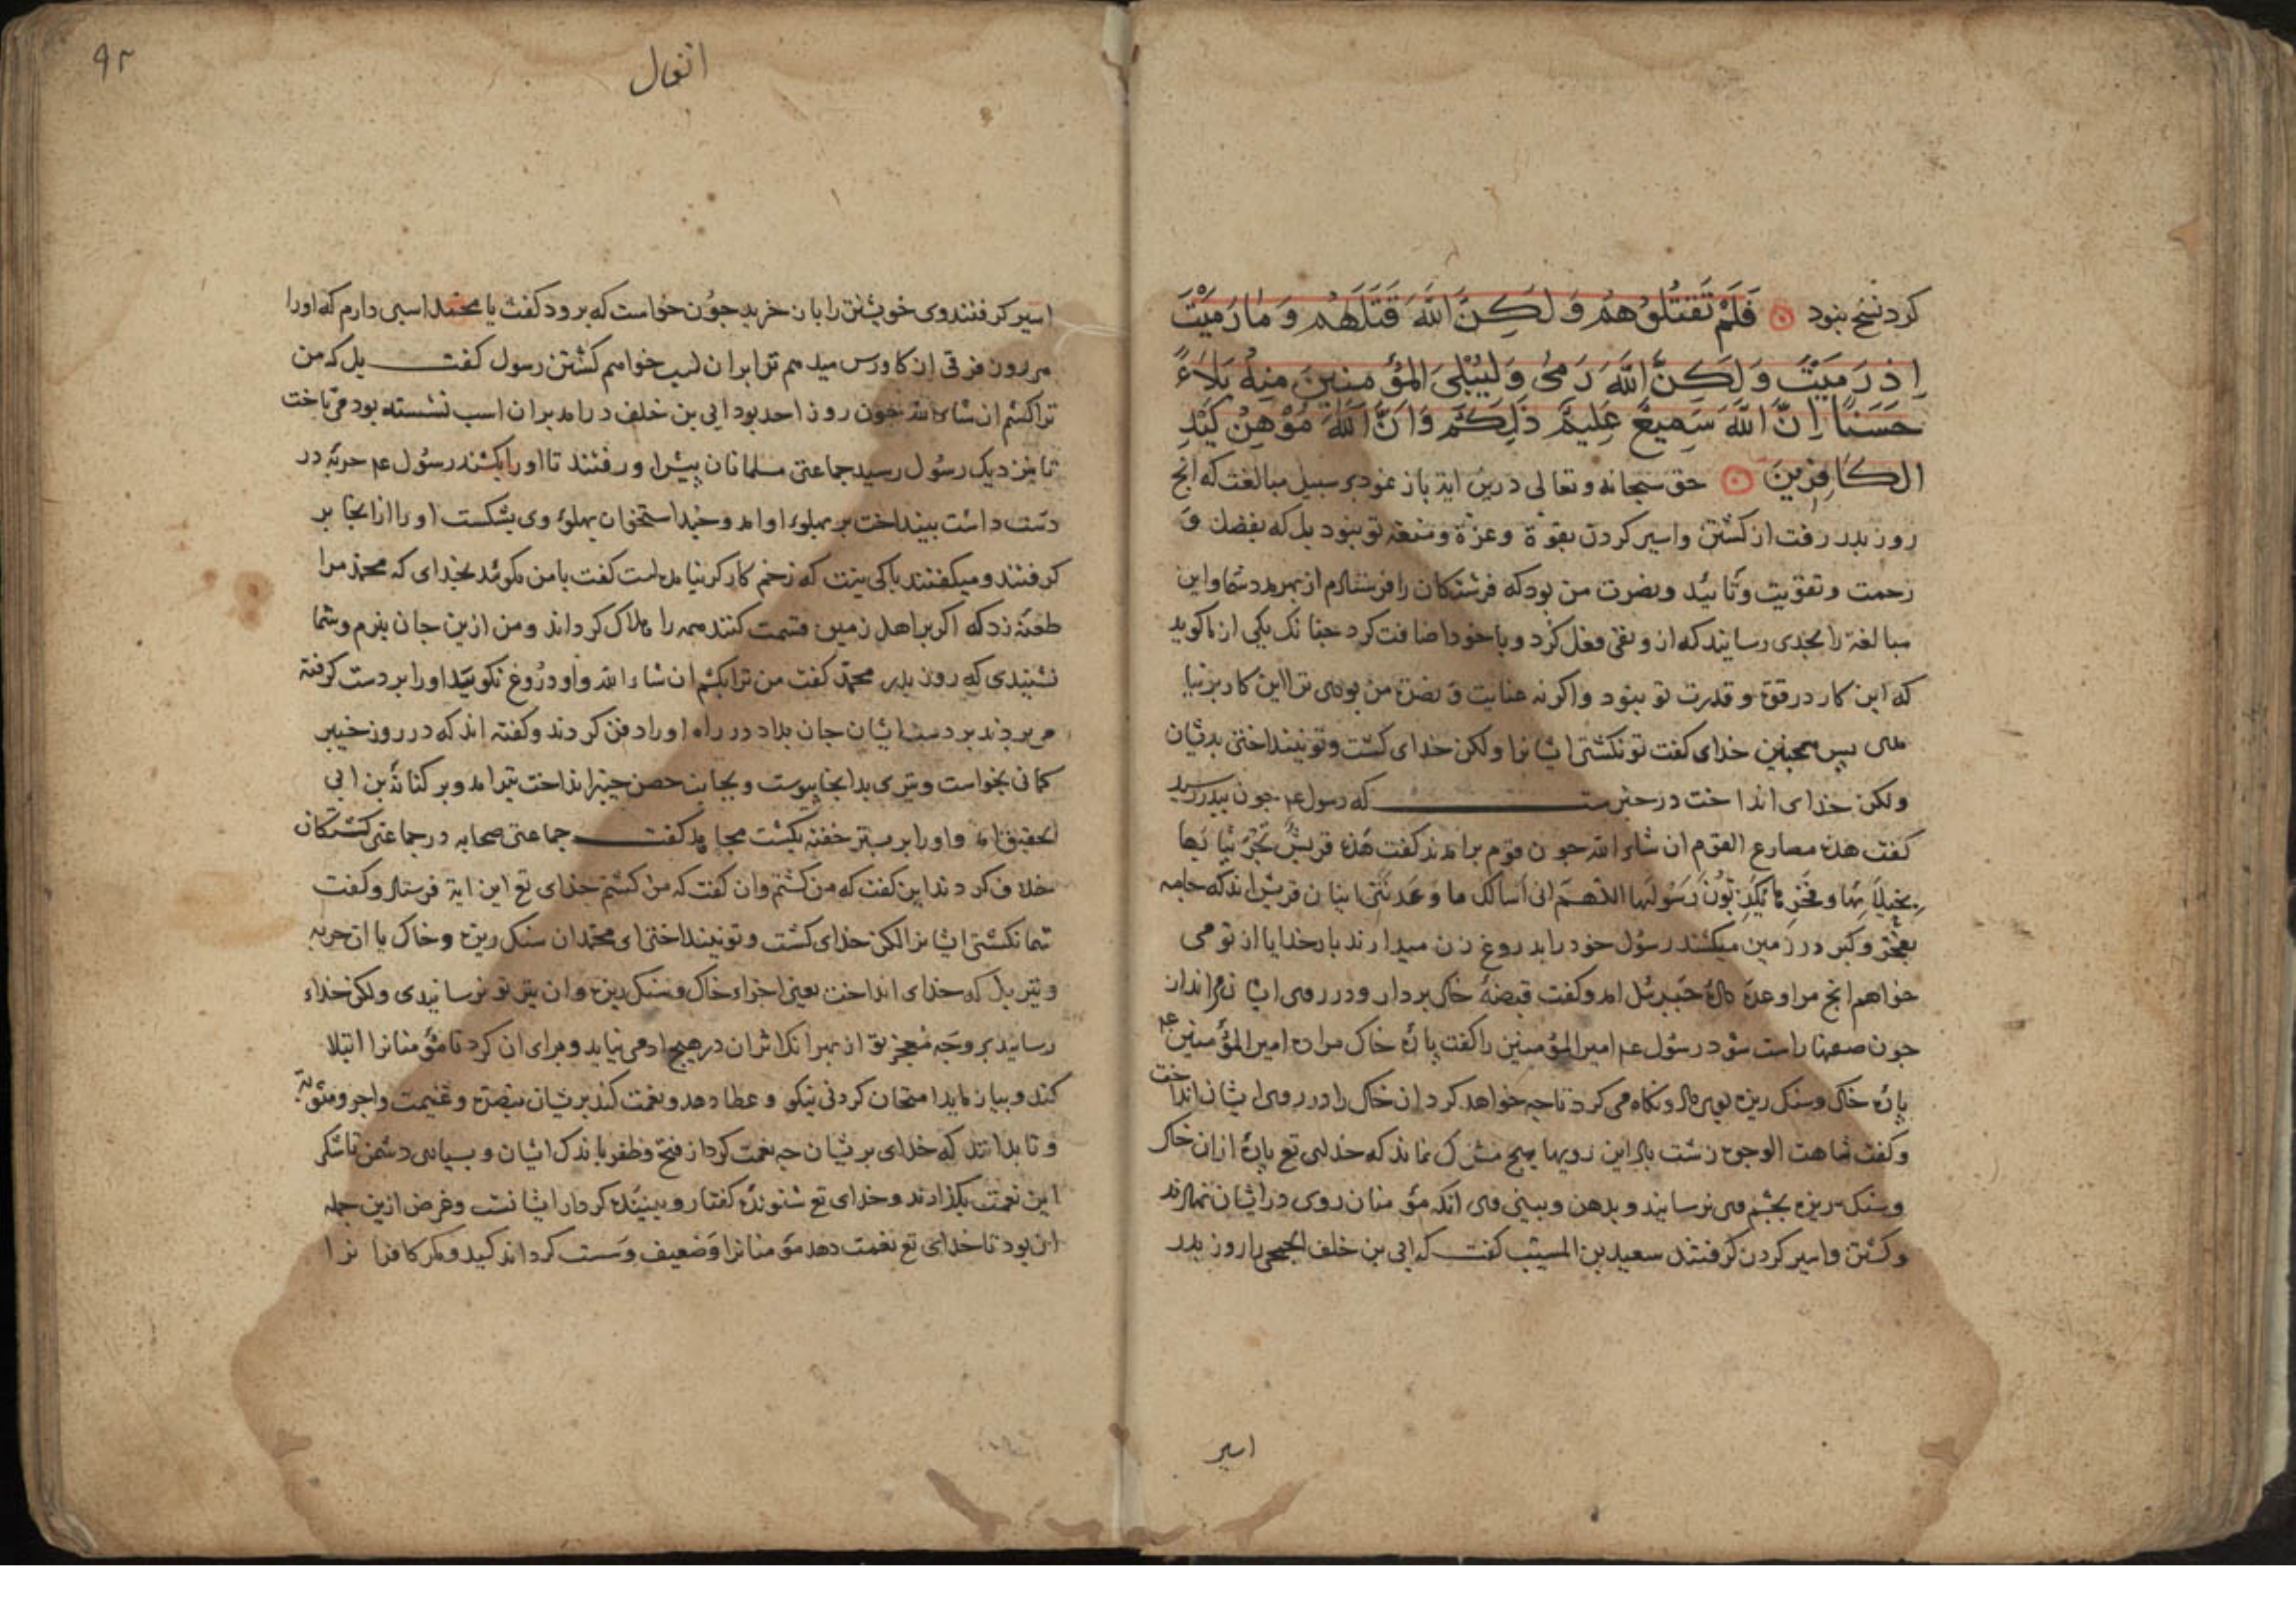 کرد نسخ نبود فَلَمْ تَقتُلُوهُمْ وَلَكِنَّ اللَّهَ قَتَلَهُمْ وَمَا رَمَيْتَ
اِذ رَمَيْتَ وَلَكِنَّ اللَّهَ رَمَىٰ وَلِيُبْلِىَ المُؤمِنِينَ مِنْهُ بَلَاءً
حَسَنًا اِنَّ اللَّهَ سَمِيعٌ عَلِيمٌ ذَلِكُمْ وَاَنَّ اللَّهَ مُوْهِنُ كَيْدِ
الكَافِرِينَ حق سبحانه و تعالی درین ایة باز نمود بر سبیل مبالغت که انج
روز بدر رفت از کشتن و اسیر کردن بقوة و عزة و منعة تو نبود بل که بفضل و
رحمت و تقویت و تایید و نصرت من بود که فرشتکان را فرستادم از بهر مدد شما و این
مبالغة را بحدی رسانید که از و نفی فعل کرد و با خود اضافت کرد جنانک یکی از ما کوید
که این کار در قوة و قدرت تو نبود و اکر نه عنایت و نصرت من بودی ترا این کار بر نیا
مدی بس همجنین خدای کفت تو نکشتی ایشانرا ولکن خدای کشت و تو نینداختی بدیشان
ولکن خدای انداخت در خبر ست که رسول عم جون ببدر رسید
کفت هذه مصارع القوم ان شاء الله جون قوم برامدند کفت هذه قریش
بخیلائها و فخرها یکذبون رسولها اللهم انی اسالک ما وعدتنی اینان قریش اند که جامه
بفخر و کبر در زمین میکشند رسول خود را بدروغ زن میدارند بار خدایا از تو می
خواهم انج مرا وعده داده جبرئل امد و کفت قبضۀ خاک بردار و در روی ایشان انداز
جون صفها راست شود رسول عم امیر المؤمنین را کفت پاره خاک مرا ده امیر المؤمنین عم
پاره خاک و سنک ریزه بوی داد و نکاه می کرد تا جه خواهد کرد ان خاک را در روی ایشان انداخت
و کفت شاهت الوجوه زشت باد این رویها هیج مشرک نماند که خدای تع پارۀ از ان خاک
و سنک ریزه بجشم وی نرسانید و بدهن و بینی وی انکه مؤمنان روی در ایشان نهادند
و کشتن و اسیر کردن کرفتند سعید بن المسیب کفت که ابی بن خلف الجمحی را روز بدر
اسیر
۹۲
انفال
اسیر کرفتند وی خویشتن را باز خرید جون خواست که برود کفت یا محمد اسبی دارم که او را
هر روز فرقی از کاورس میدهم ترا بر ان اسب خواهم کشتن رسول کفت بل که من
ترا کشم ان شاء الله جون روز احد بود ابی بن خلف در امد بر ان اسب نشسته بود می تاخت
تا بنزدیک رسول رسید جماعتی مسلمانان پیش او رفتند تا او را بکشند رسول عم حربۀ در
دست داشت بینداخت بر بهلوی او امد و جند استخوان بهلوی وی بشکست او را از انجا بر
کرفتند و میکفتند باکی نیست که زخم کارکر نیامده است کفت با من مکوئید بخدای که محمد مرا
طعنۀ زد که اکر بر اهل زمین قسمت کنند همه را هلاک کرداند و من ازین جان نبرم و شما
نشنیدی که روز بدر محمد کفت من ترا بکشم ان شاء الله و او دروغ نکوید او را بر دست کرفته
می بردند بر دست ایشان جان بداد در راه او را دفن کردند و کفته اند که در روز خیبر
کمانی بخواست و تیری بدانجا پیوست و بجانب حصن خیبر انداخت تیر امد و بر کنانة بن ابی
الحقیق امد و او را بر بستر خفته بکشت مجاهد کفت جماعتی صحابه در جماعتی کشتکان
خلاف کردند این کفت که من کشتم و ان کفت که من کشتم خدای تع این ایة فرستاد و کفت
شما نکشتی ایشانرا لکن خدای کشت و تو نینداختی ای محمد ان سنک ریزه و خاک یا ان حربه
و تیر بل که خدای انداخت یعنی اجزاء خاک و سنک ریزه و ان تیر تو نرسانیدی ولکن خداء
رسانید بر وجه معجز تو از بهر انک اثر ان در هیج ادمی نیاید و برای ان کرد تا مؤمنانرا ابتلا
کند و بیازماید امتحان کردنی نیکو و عطا دهد و نعمت کند بریشان بنصرة و غنیمت و اجر و مثوبة
و تا بدانند که خدای بریشان جه نعمت کرد از فتح و ظفر با اندکی ایشان و بسیاری دشمن تا شکر
این نعمت بکزارند و خدای تع شنوندۀ کفتار و بینندۀ کردار ایشانست و غرض ازین جمله
ان بود تا خدای تع نعمت دهد مؤمنانرا و ضعیف و سست کرداند کید و مکر کافرانرا